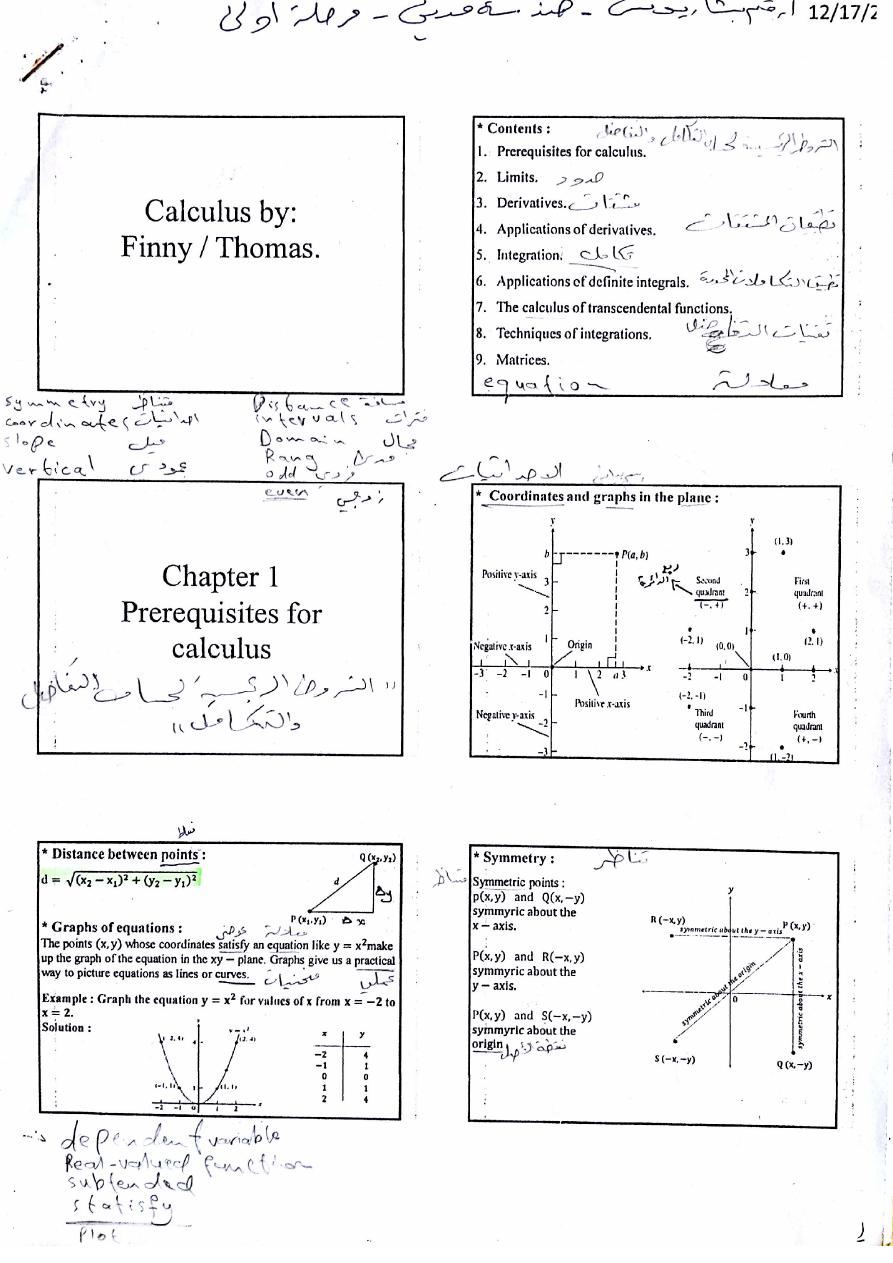 هندسة مدني - مرحلة اولى
12/17/2
Calculus by:
Finny / Thomas.
* Contents :
1. Prerequisites for calculus.
2. Limits. حدود
3. Derivatives. مشتقات
4. Applications of derivatives. تطبيقات المشتقات
5. Integration. تكامل
6. Applications of definite integrals.
7. The calculus of transcendental functions.
8. Techniques of integrations.
9. Matrices.
equation معادلة
symmetry
coordinates احداثيات
slope ميل
vertical عمودي
Distance مسافة
intervals فترات
Domain مجال
Rang مدى
odd فردي
even زوجي
Chapter 1
Prerequisites for
calculus
"الشروط الرئيسية لحساب التفاضل
والتكامل"
الاحداثيات
* Coordinates and graphs in the plane :
y
b
P(a, b)
Positive y-axis
3
2
1
Negative x-axis
Origin
-3 -2 -1 0 1 2 a 3 x
-1
Positive x-axis
Negative y-axis
-2
-3
y
(1, 3)
3
Second
quadrant
(-, +)
First
quadrant
(+, +)
2
1
(-2, 1)
(2, 1)
(0, 0)
(1, 0)
-2 -1 0 1 2 x
(-2, -1)
-1
Third
quadrant
(-, -)
Fourth
quadrant
(+, -)
-2
(1, -2)
نقاط
* Distance between points :
d = √(x₂ − x₁)² + (y₂ − y₁)²
Q(x₂, y₂)
d
Δy
P(x₁, y₁)
Δx
* Graphs of equations :
The points (x, y) whose coordinates satisfy an equation like y = x²make
up the graph of the equation in the xy − plane. Graphs give us a practical
way to picture equations as lines or curves. منحنيات
Example : Graph the equation y = x² for values of x from x = −2 to
x = 2.
Solution :
(2, 4)
4
(-1, 1)
1
(1, 1)
-2 -1 0 1 2 x
x y
−2 4
−1 1
0 0
1 1
2 4
* Symmetry : تناظر
نقاط
Symmetric points :
p(x, y) and Q(x, −y)
symmyric about the
x − axis.
P(x, y) and R(−x, y)
symmyric about the
y − axis.
P(x, y) and S(−x, −y)
symmyric about the
origin نقطة الاصل
y
R (−x, y)
symmetric about the y − axis
P (x, y)
symmetric about the origin
symmetric about the x − axis
0
x
S (−x, −y)
Q (x, −y)
dependent variable
Real-valued function
subtended
statisfy
Plot
1